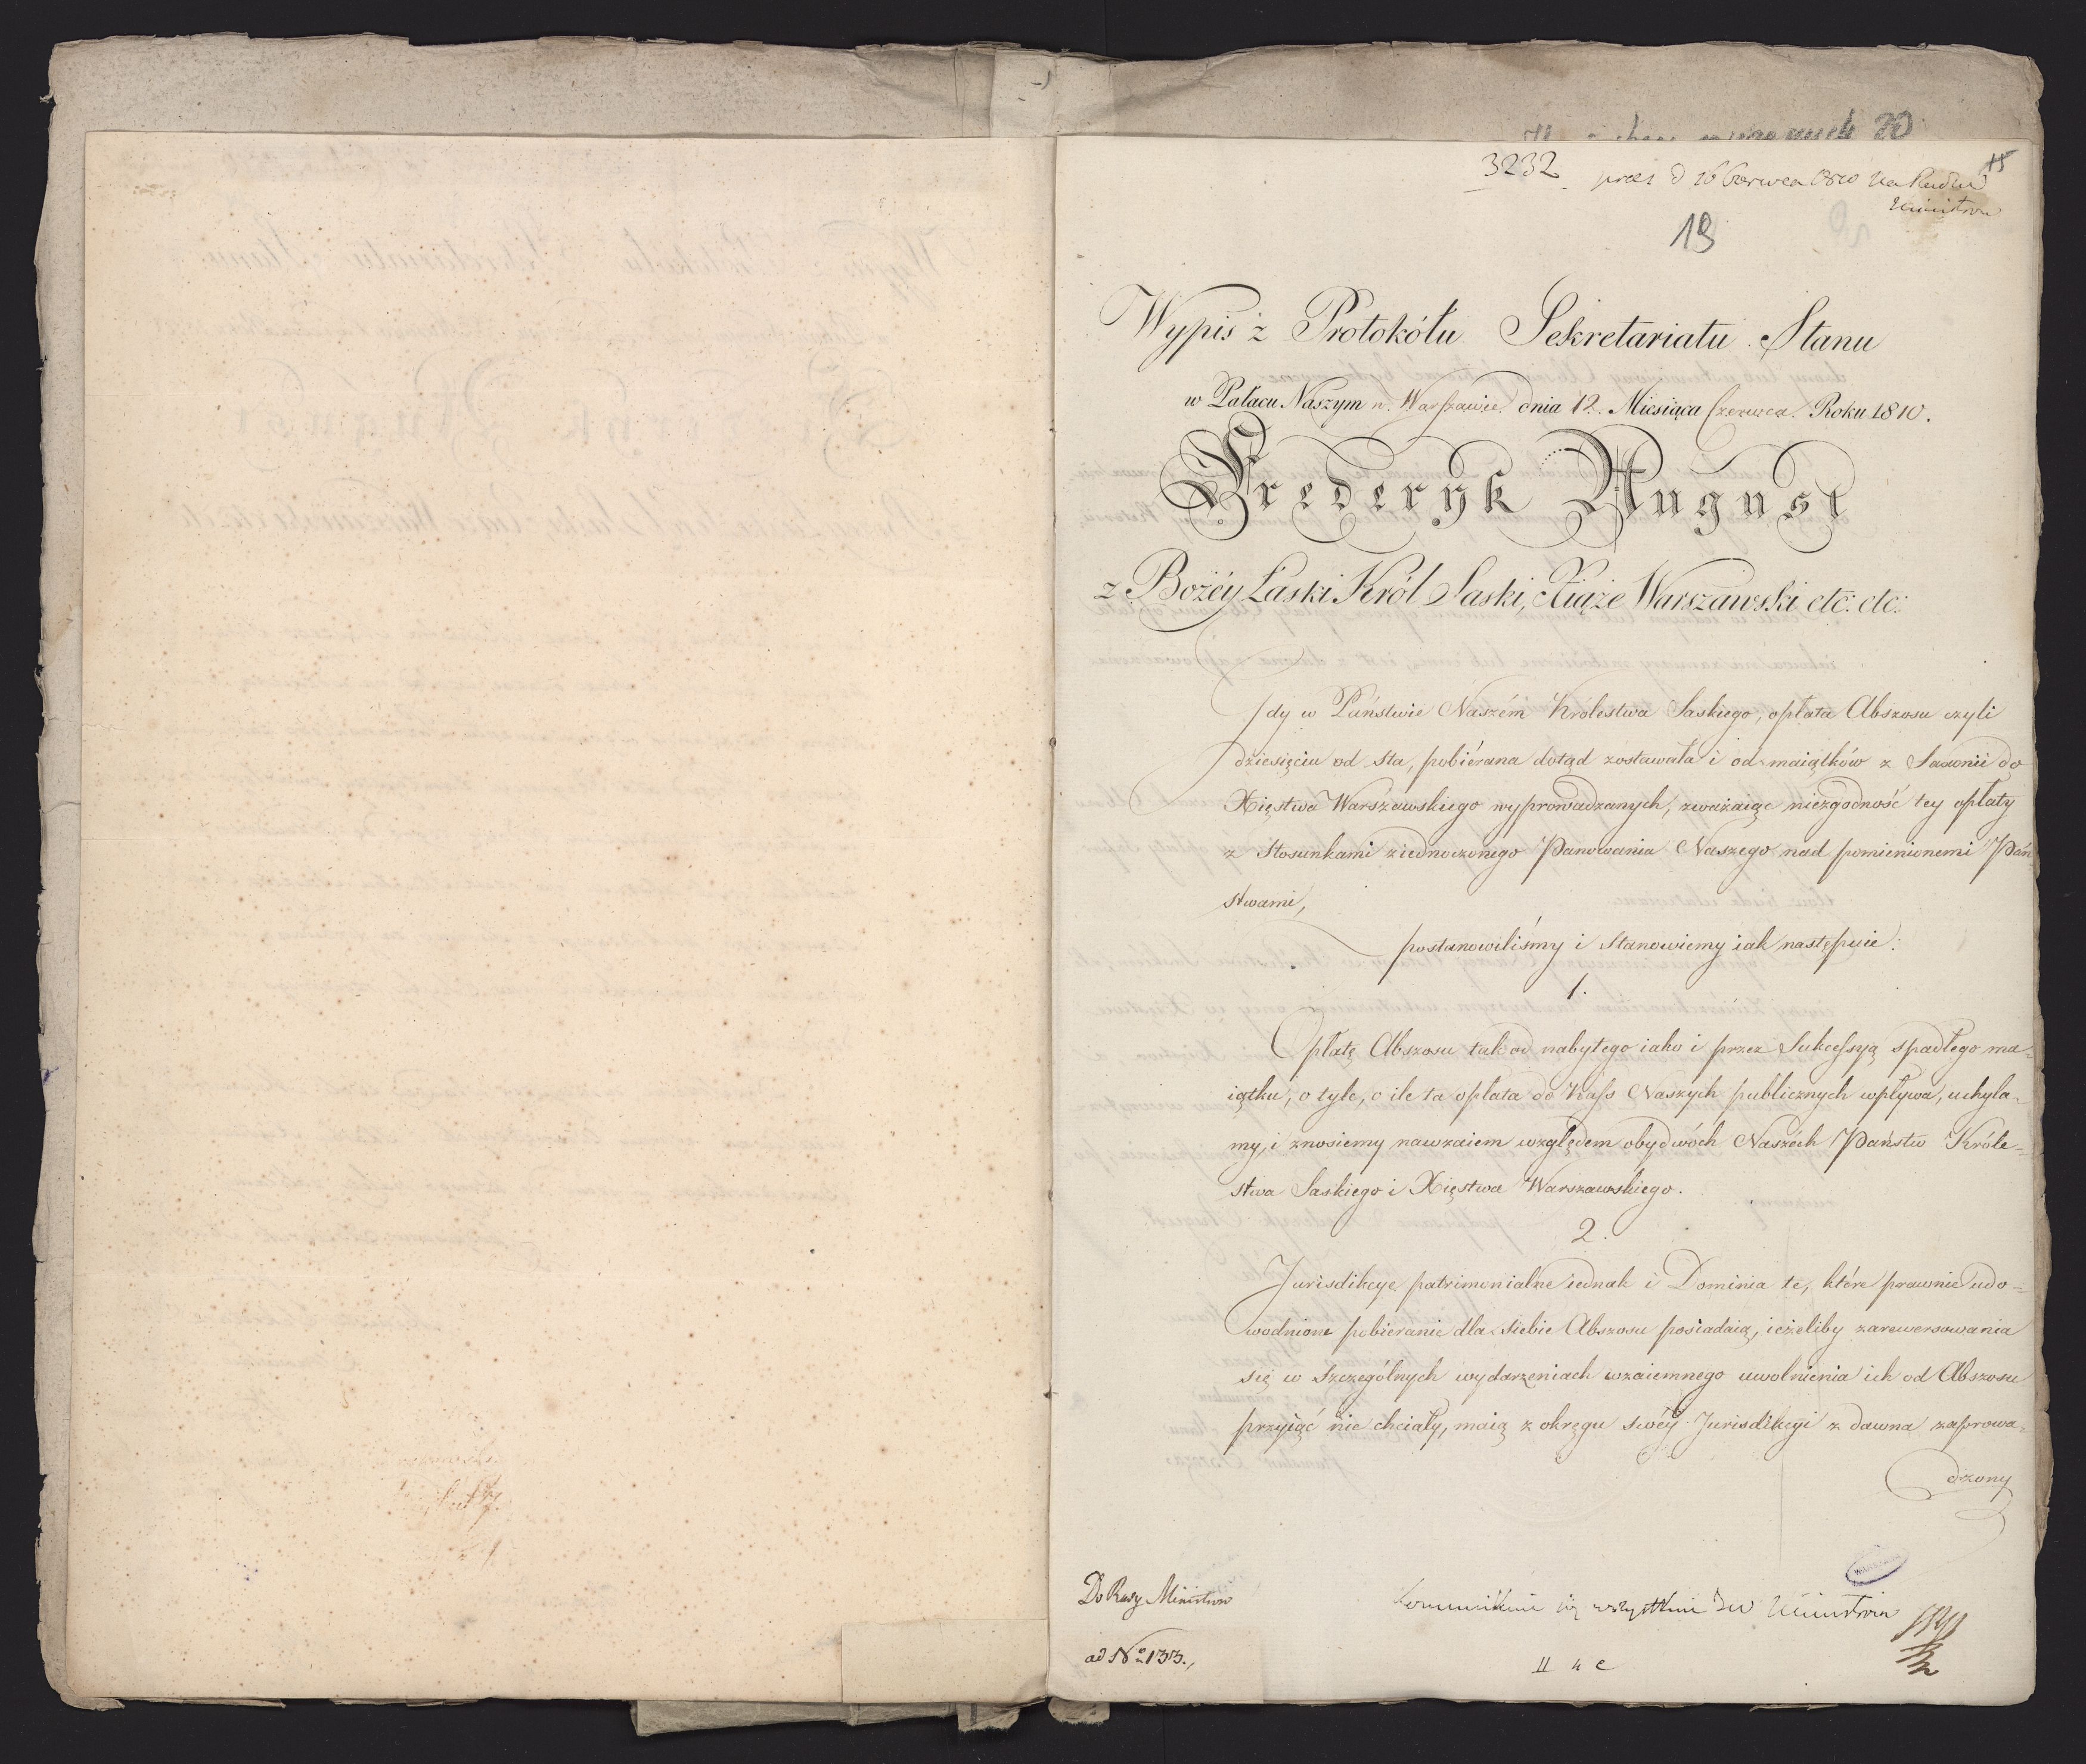 3232 prez d 16 Czerwca 1810 Na Radzie
15
Ministrów
19
Wypis z Protokółu Sekretariatu Stanu
w Pałacu Naszym w Warszawie dnia 12. Miesiąca Czerwca. Roku 1810.
Frederyk August
z Bożéy Łaski Król Saski, Xiąże Warszawski etc: etc:
Gdy w Państwie Naszém Królestwa Saskiego, opłata Abszosu czyli
dziesięciu od sta, pobiérana dotąd zostawała i od maiątków z Saxonii do
Xięstwa Warszawskiego wyprowadzanych, zważaiąc niezgodność tey opłaty
z stosunkami ziednoczonego Panowania Naszego nad pomienionemi Pań
stwami,
postanowiliśmy i stanowiemy iak następuie:
1.
Opłatę Abszosu tak od nabytego iako i przez Sukcessyą spadłego ma-
iątku, o tyle, o ile ta opłata do Kass Naszych publicznych wpływa, uchyla-
my, i znosiemy nawzaiem względem obydwóch Naszych Państw Króle-
stwa Saskiego i Xięstwa Warszawskiego.
2.
Jurisdikcye patrimonialne iednak i Dominia te, które prawnie udo-
wodnione pobieranie dla siebie Abszosu posiadaią, ieżeliby zarewersowania
się w szczególnych wydarzeniach wzaiemnego uwolnienia ich od Abszosu
przyiąć nie chciały, maią z okręgu swéy Jurisdikcyi z dawna zaprowa-
dzony
Do Rady Ministrów
wszystkim JW Ministrom
ad No 133.,
II 4 c